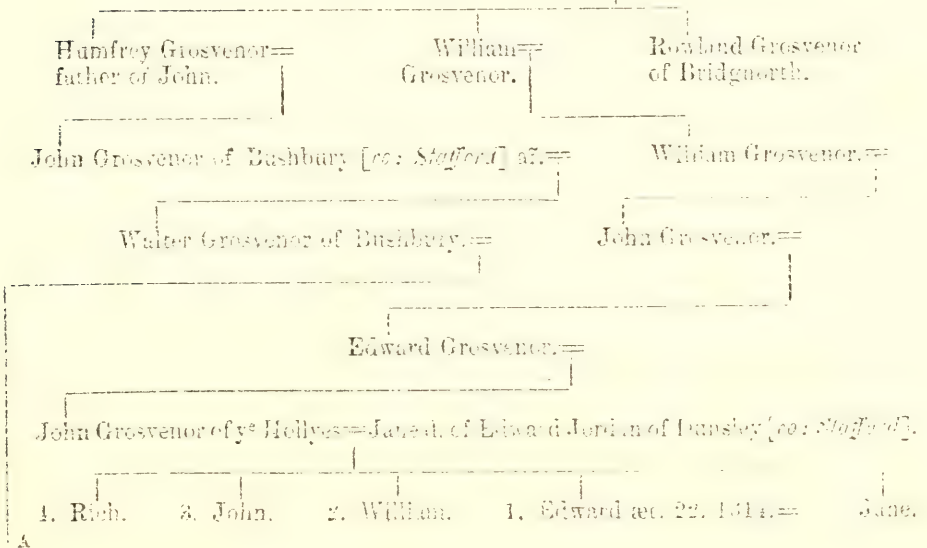 Humfrey Grosvenor= William= Rowland Grosvenor
father of John. Grosvenor. of Bridgnorth.
John Grosvenor of Bushbury [co: Stafford] ar.= William Grosvenor.=
Walter Grosvenor of Bushbury.= John Grosvenor.=
Edward Grosvenor.=
John Grosvenor of yᵉ Hollyes=Jane d. of Edward Jordan of Dunsley [co: Stafford].
4. Rich. 3. John. 2. William. 1. Edward æt. 22. = Jane.
A